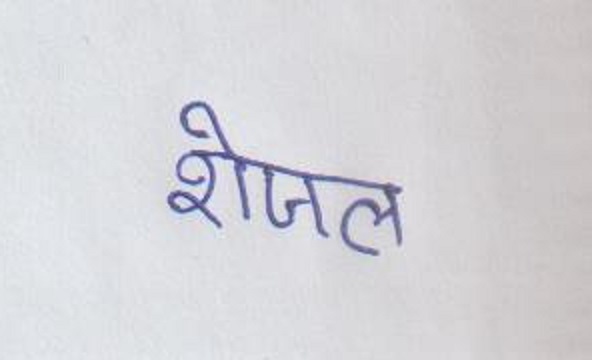 शेजल